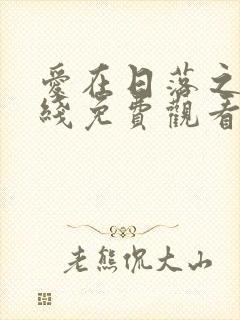 愛在日落之
綫免費觀看
老熊侃大山